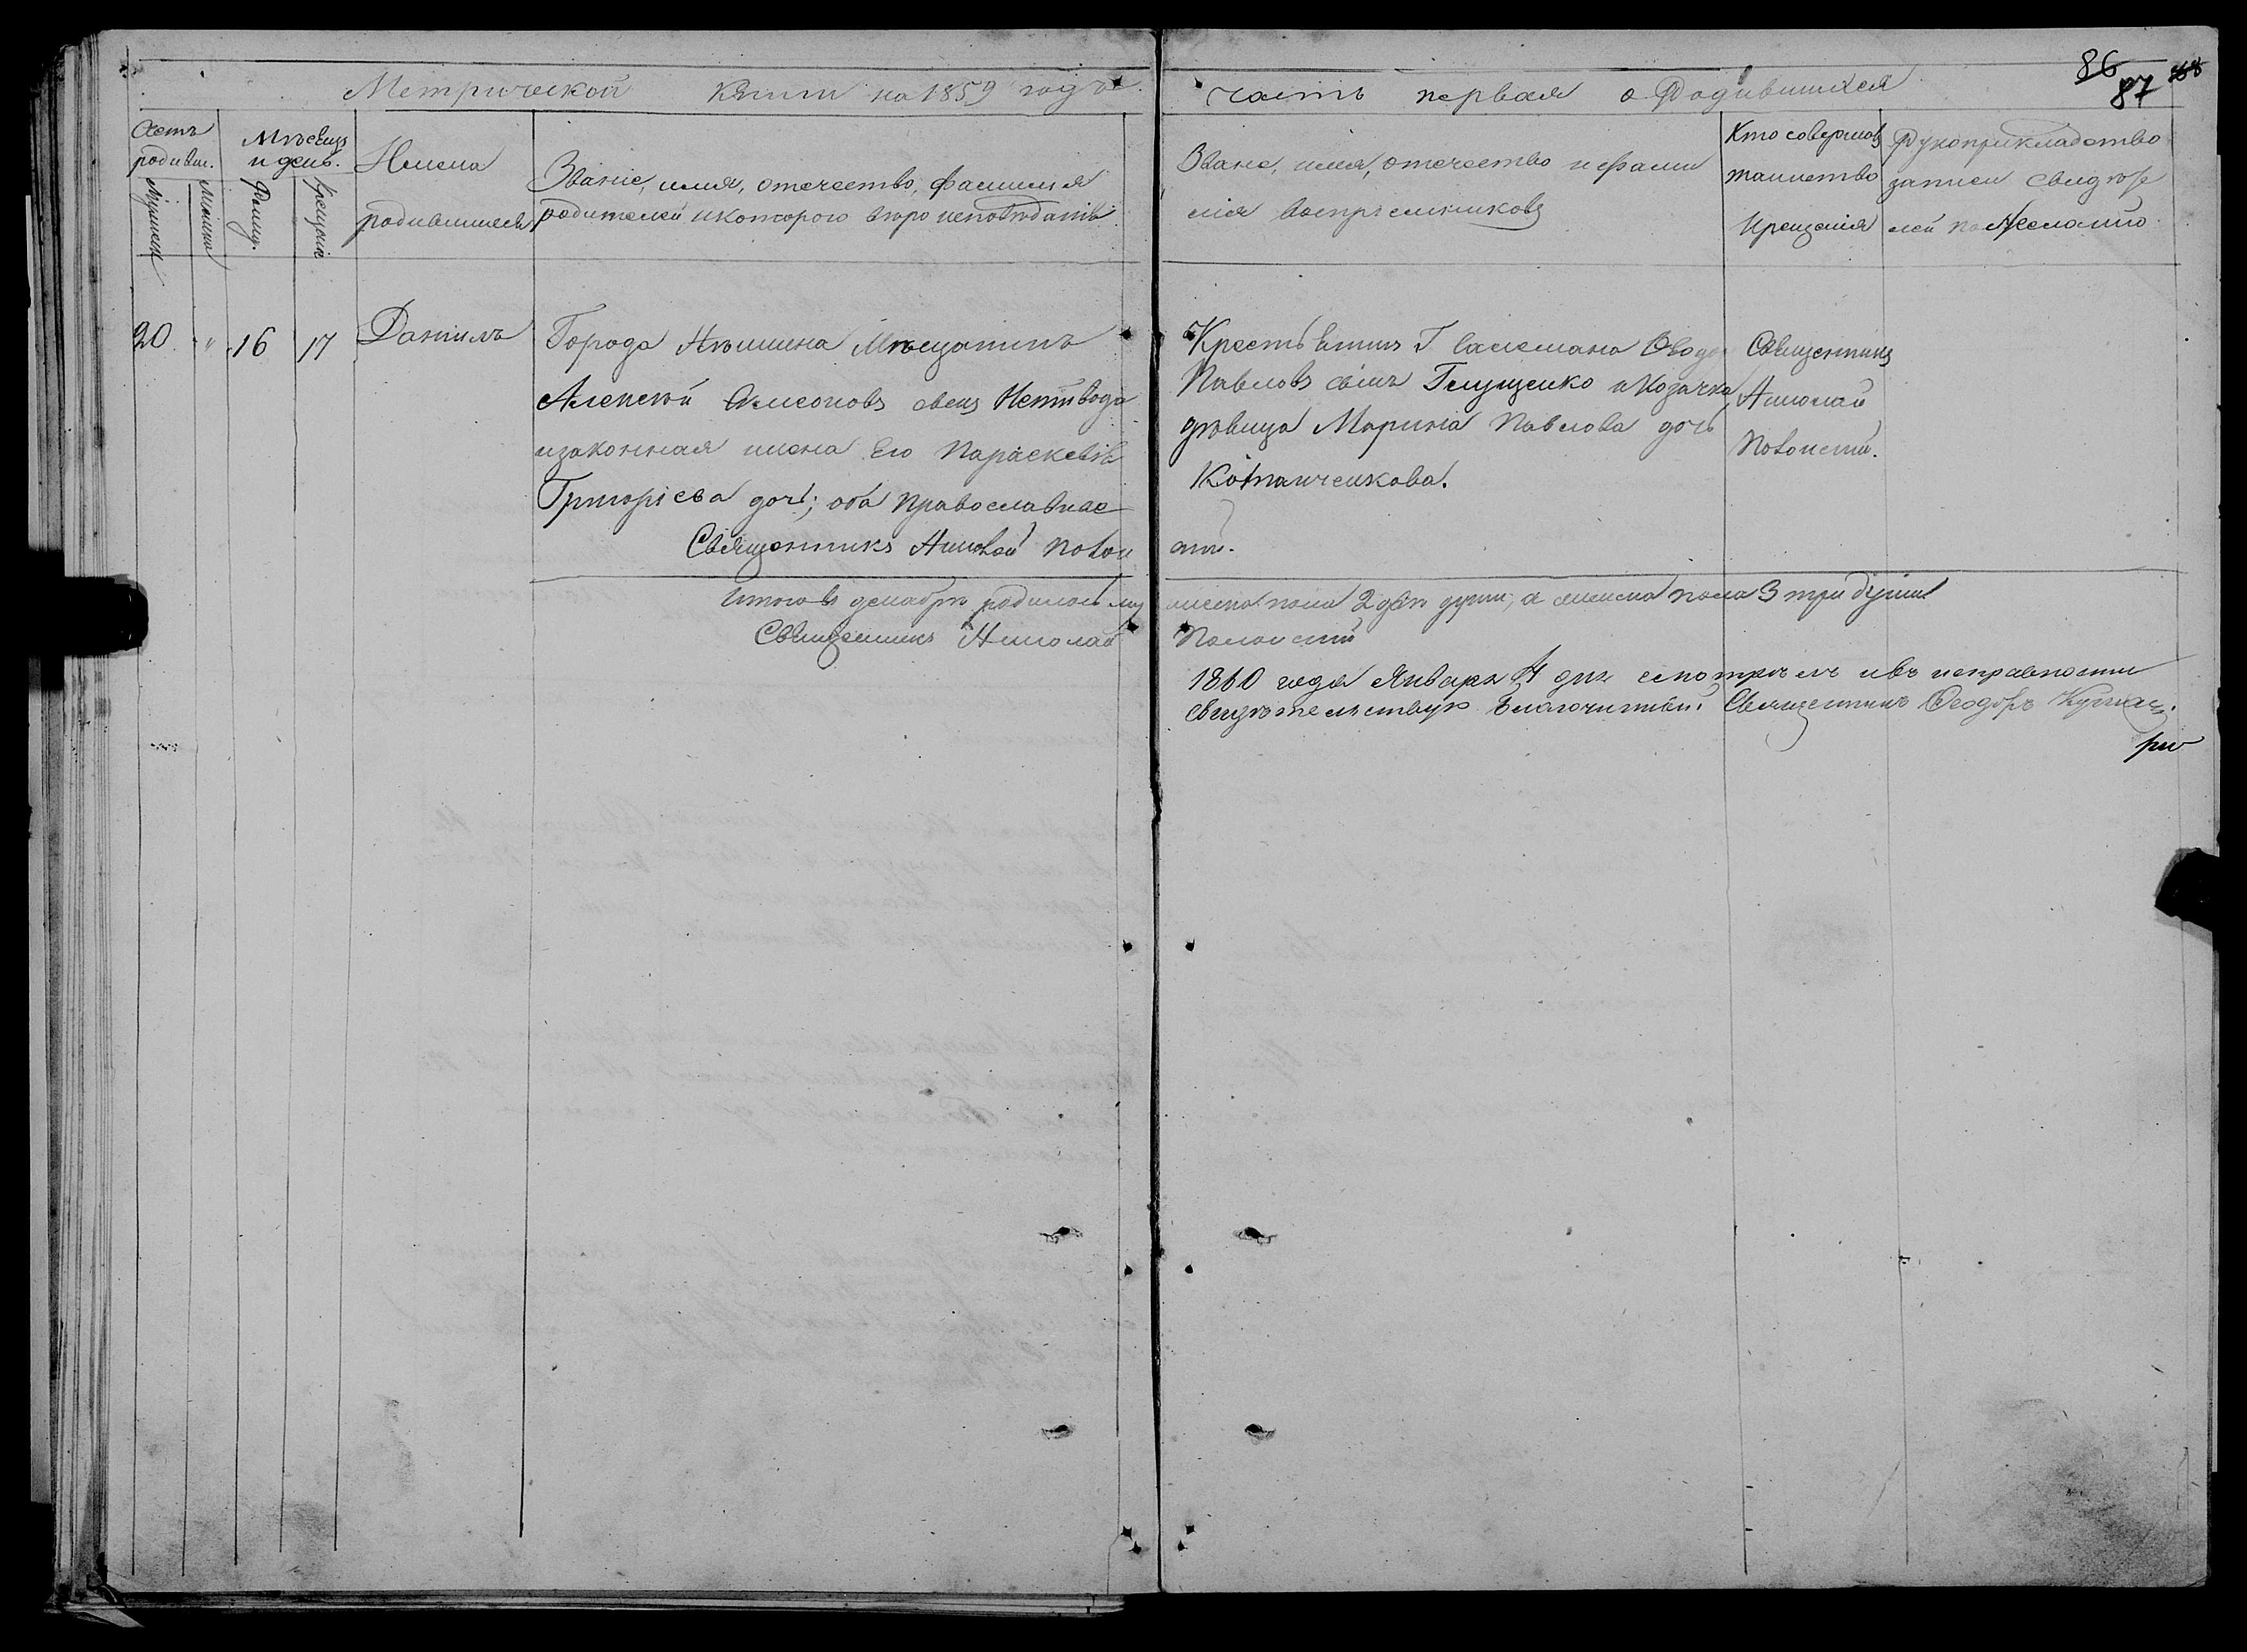 86
87 88
Метрической книги на 1859 годъ.
часть первая о Родившихся
Счетъ родивш.
Мѣсяцъ и день.
Имена родившихся
Званіе, имя, отечество, фамилія
родителей и которого вѣроисповѣданія
Званіе, имя, отечество и фами
лія воспріемниковъ
Кто совершалъ
таинство
Крещенія
Рукоприкладство
записи свидѣте
лей по желанію
20 " 16 17 Даніилъ
Города Нѣжина Мѣщанинъ
Алексѣй сынъ Нетѣвода
и законная жена Его Параскевія
Григоріева дочь; оба православные
Священникъ Николай Полон
скій.
Крестьянинъ Г
Павловъ сынъ Глущенко и Козачка
дѣвица Марина Павлова дочь
Священникъ
Николай
Полонскій.
Итого въ декабрѣ родилось му
жеска пола 2 двѣ души, а женска пола 3 три души
Священникъ Николай
Полонскій
1860 года Января 4 дня смотрѣлъ и въ исправности
свидѣтельствую Благочинный Священникъ Ѳеодоръ